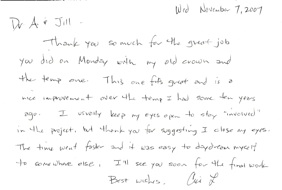 Wed November 7, 2007
Dr A & Jill
Thank you so much for the great job
you did on Monday with my old crown and
the temp one. This one fits great and is a
nice improvement over the temp I had some ten years
ago. I usually keep my eyes open to stay "involved"
in the project, but thank you for suggesting I close my eyes.
The time went faster and it was easy to daydream myself
to somewhere else. I'll see you soon for the final work.
Best wishes,